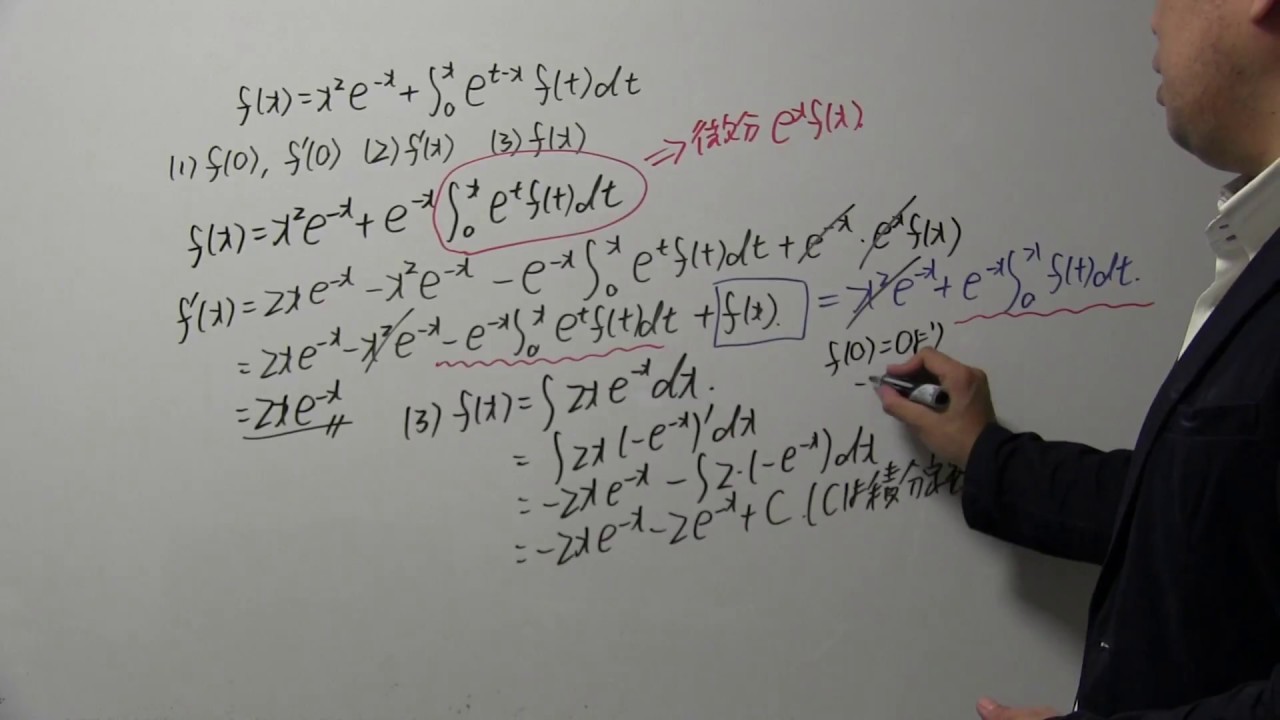 f(x)=x²e^{-x}+∫₀^x e^{t-x} f(t)dt
(1) f(0), f'(0) (2) f'(x) (3) f(x)
⇒ 微分 e^x f(x)
f(x)=x²e^{-x}+e^{-x}∫₀^x e^t f(t)dt
f'(x)=2xe^{-x}-x²e^{-x}-e^{-x}∫₀^x e^t f(t)dt+e^{-x}·e^x f(x)
=2xe^{-x}-x²e^{-x}-e^{-x}∫₀^x e^t f(t)dt+f(x). =x²e^{-x}+e^{-x}∫₀^x f(t)dt.
=2xe^{-x}
f(0)=0より
-
(3) f(x)=∫2xe^{-x}dx.
=∫2x(-e^{-x})'dx
=-2xe^{-x}-∫2·(-e^{-x})dx
=-2xe^{-x}-2e^{-x}+C.(Cは積分定